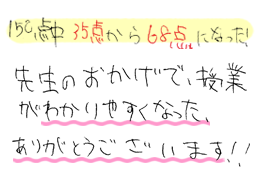 150点中 35点から68点になった!
先生のおかげで、授業
がわかりやすくなった。
ありがとうございます!!